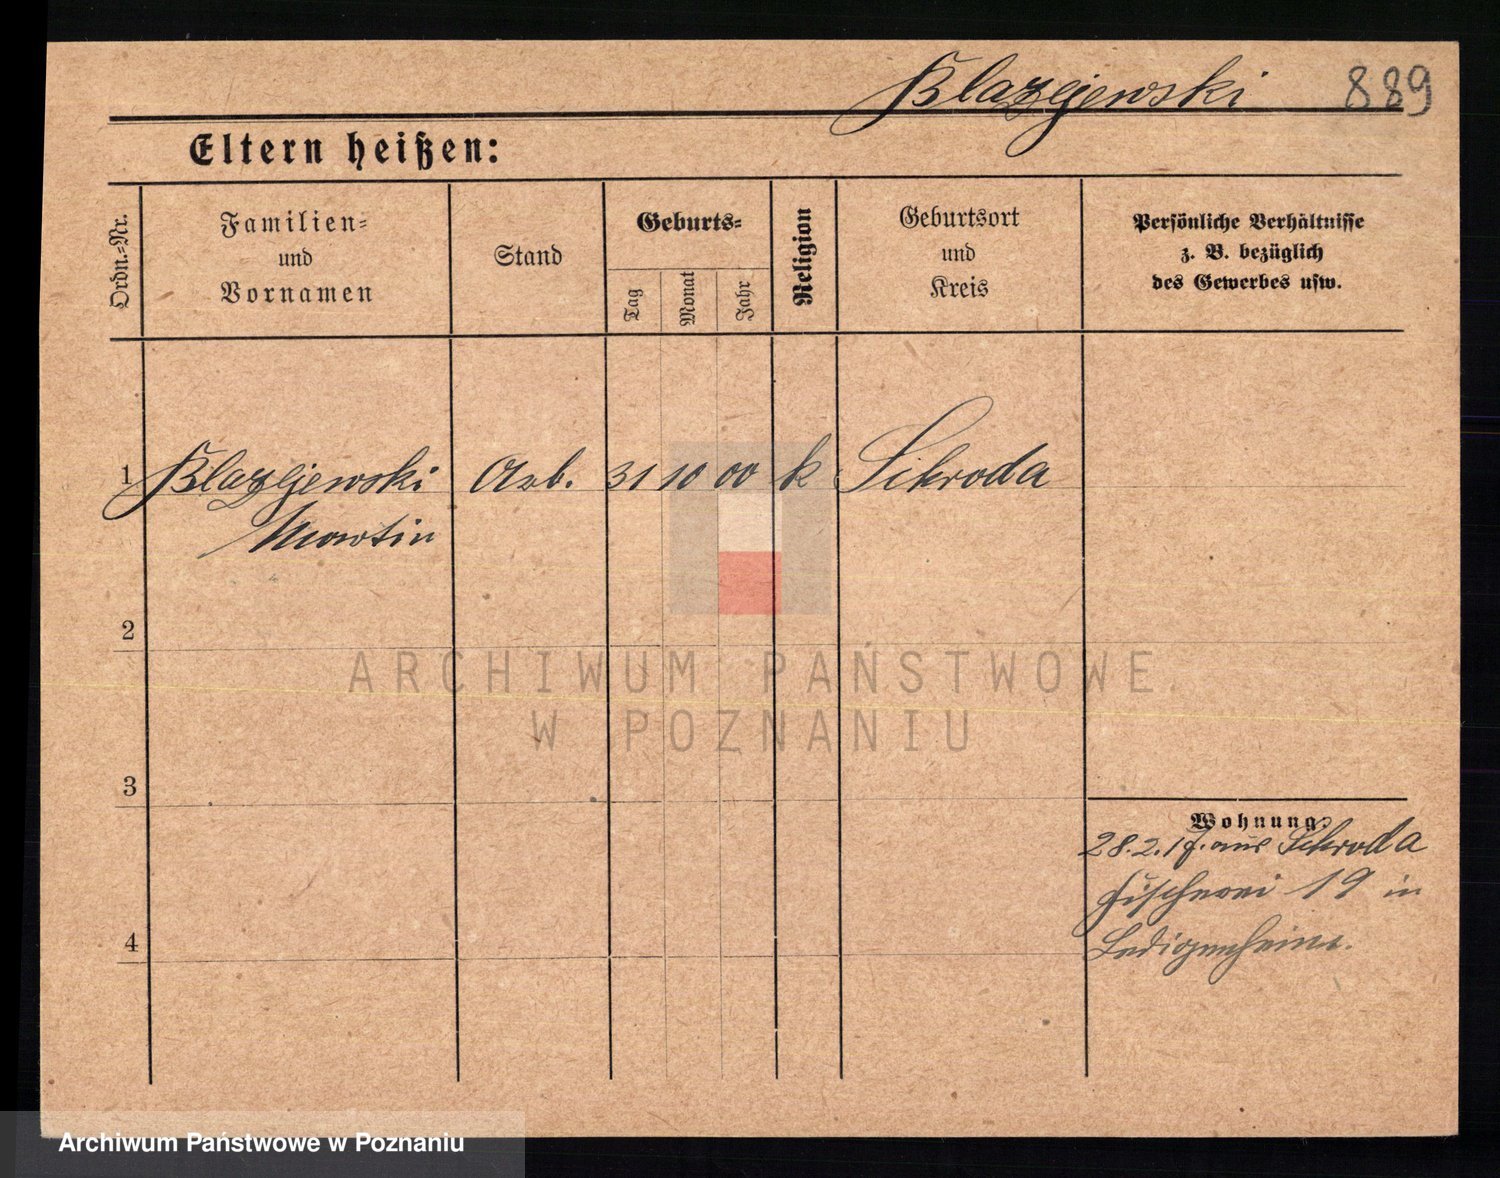 Blazejewski 889
Eltern heißen:
Ordn.-Nr.
Familien-
und
Vornamen
Stand
Geburts-
Tag
Monat
Jahr
Religion
Geburtsort
und
Kreis
Persönliche Verhältnisse
z. B. bezüglich
des Gewerbes usw.
1 Blazejewski Arb. 31 10 00 k Schroda
Martin
2
ARCHIWUM PAŃSTWOWE
W POZNANIU
3
Wohnung:
28.2.17. aus Schroda
Fischerei 19 in
4
Ledigenheim.
Archiwum Państwowe w Poznaniu